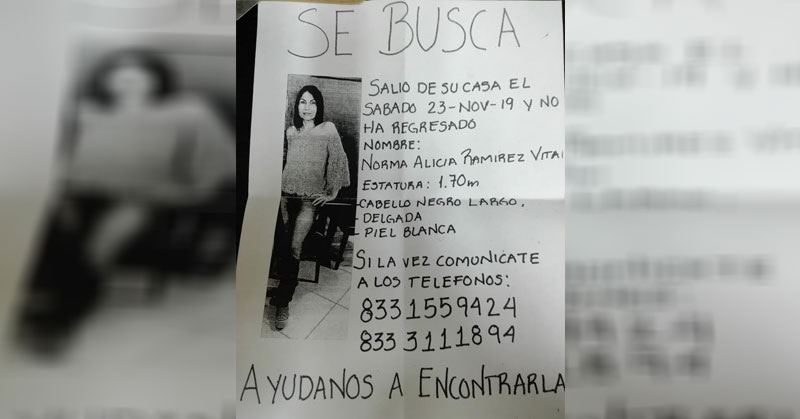 SE BUSCA
SALIO DE SU CASA EL
SABADO 23-NOV-19 Y NO
HA REGRESADO
NOMBRE:
NORMA ALICIA RAMIREZ VITAL
ESTATURA: 1.70m
-CABELLO NEGRO LARGO.
- DELGADA
- PIEL BLANCA
SI LA VEZ COMUNICATE
A LOS TELEFONOS:
8331559424
833 3111894
AYUDANOS A ENCONTRARLA